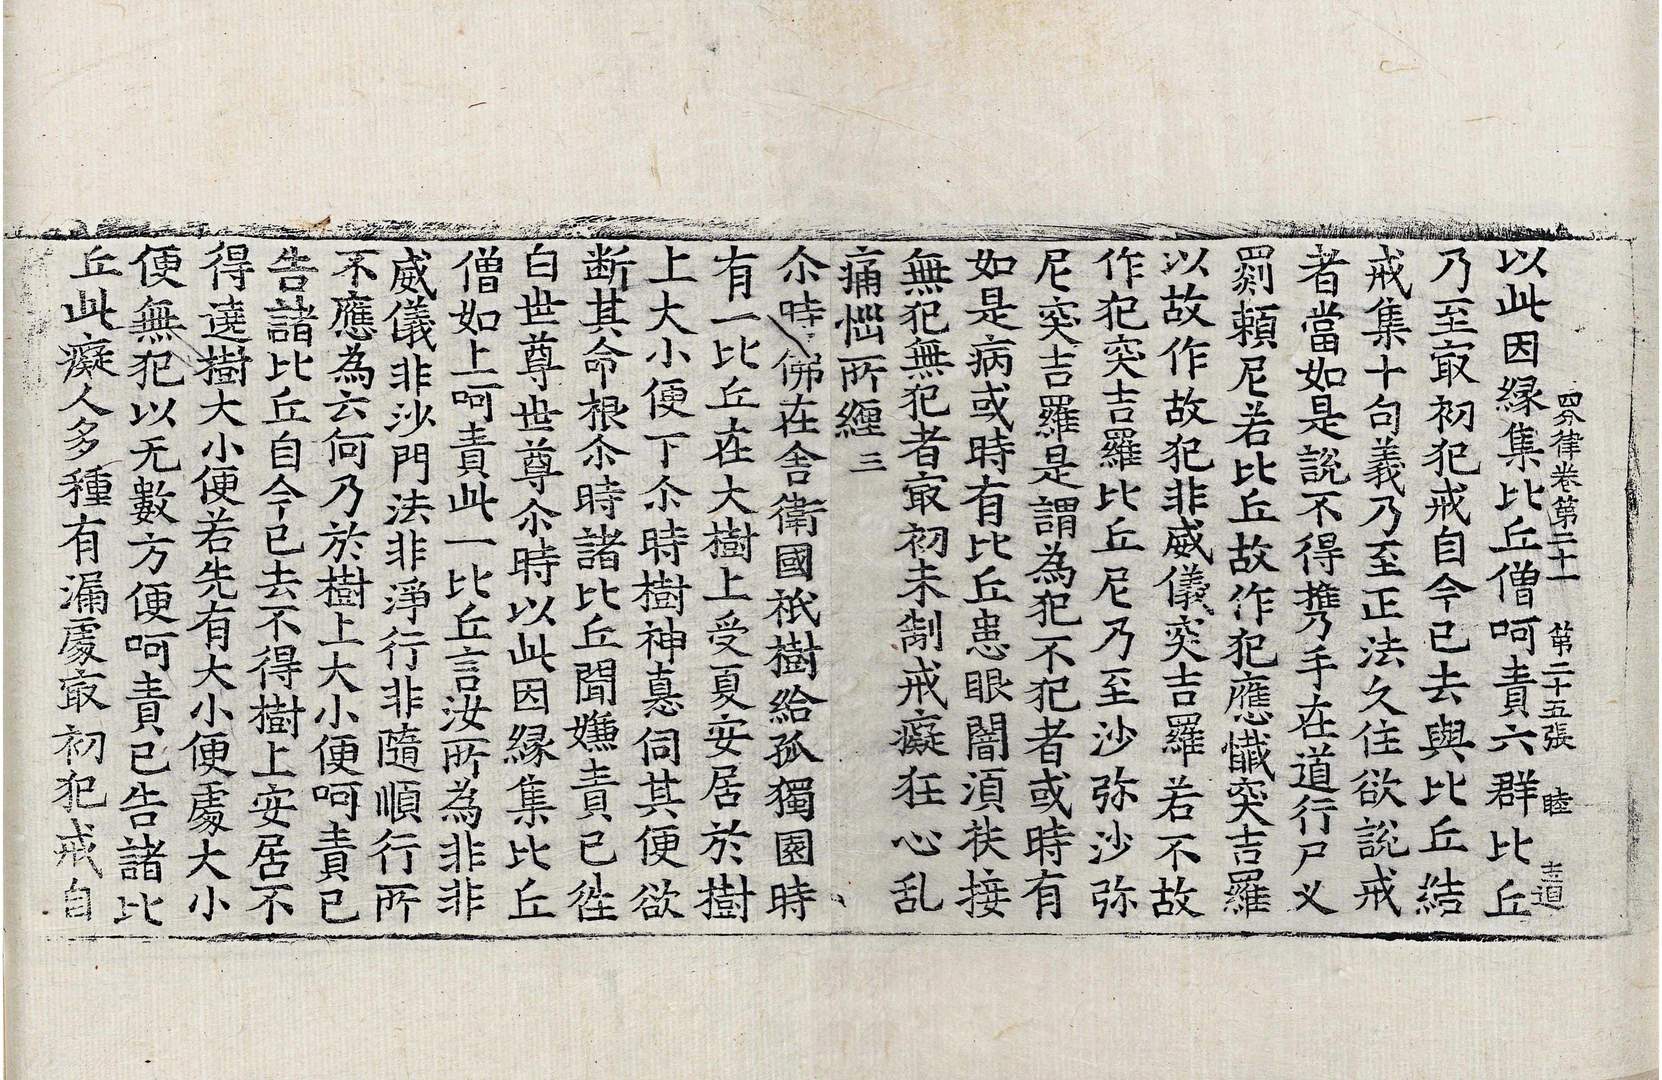 四分律卷第二十一 第二十五張 睦 志道
以此因縁集比丘僧呵責六群比丘
乃至㝡初犯戒自今已去與比丘結
戒集十句義乃至正法久住欲說戒
者當如是說不得㩗手在道行尸叉
罽賴尼若比丘故作犯應懺突吉羅
以故作故犯非威儀突吉羅若不故
作犯突吉羅比丘尼乃至沙弥沙弥
尼突吉羅是謂為犯不犯者或時有
如是病或時有比丘患眼闇湏扶接
無犯無犯者㝡初未制戒癡狂心乱
痛惱所纏三
尒時佛在舎衛國祇樹給孤獨園時
有一比丘在大樹上受夏安居於樹
上大小便下尒時樹神恚伺其便欲
断其命根尒時諸比丘聞嫌責已徃
白世尊世尊尒時以此因縁集比丘
僧如上呵責此一比丘言汝所為非非
威儀非沙門法非淨行非隨順行所
不應為云何乃於樹上大小便呵責已
告諸比丘自今已去不得樹上安居不
得遶樹大小便若先有大小便處大小
便無犯以无數方便呵責已告諸比
丘此癡人多種有漏處㝡初犯戒自